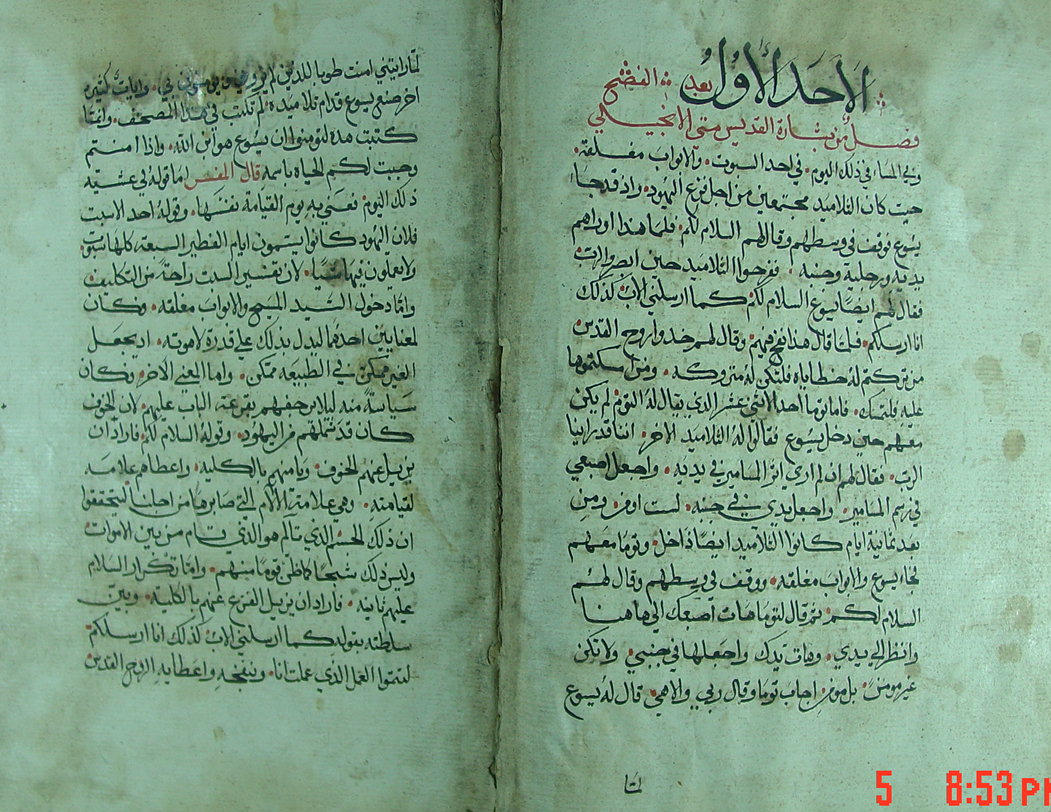 الاحد الاول بعد الفصح
فصل من بشارة القديس متى الانجيلي
وفي المسا في ذلك اليوم في احد السبوت والابواب مغلقه
حيت كان التلاميد مجتمعين من اجل فزع اليهود واد قد جا
يسوع فوقف في وسطهم وقال لهم السلام لكم فلما هدا اوراهم
يديه ورجليه وجنبه ففرحوا التلاميد حين ابصروا الرب
فقال لهم ايضا يسوع السلام لكم كما ارسلني الاب كذلك
انا ارسلكم فلما قال هدا نفخ فيهم وقال لهم خدوا روح القدس
من تركتم له خطاياه فلتكن له متروكه ومن امسكتموها
عليه فلتمسك فاما توما احد الاثني عشر الدي يقال له التوم لم يكن
معهم حين دخل يسوع فقالوا له التلاميد الاخر اننا قد راينا
الرب فقال لهم ان لم اري اثر المسامير في يديه واجعل اصبعي
في رسم المسامير واجعل يدي في جنبه لست اومن ومن
بعد ثمانية ايام كانوا التلاميد ايضا داخل وتوما معهم
فجا يسوع والابواب مغلقه ووقف في وسطهم وقال لهم
السلام لكم ثم قال لتوما هات اصبعك الي هاهنا
وانظر الي يدي وهات يدك واجعلها في جنبي ولا تكن
غير مومن بل مومن اجاب توما وقال ربي والاهي قال له يسوع
لما رايتني امنت طوبا للدين لم يروني وايات كثيره
اخر صنع يسوع قدام تلاميده لم تكتب في هدا المصحف وانما
كتبت هده لتومنوا ان يسوع هو ابن الله وادا امنتم
وجبت لكم الحياه باسمه قال المفسر اما قوله في عشية
ذلك اليوم فعني به يوم القيامه نفسها وقوله احد السبت
فلان اليهود كانوا يسمون ايام الفطير السبعه كلها سبوت
ولا يعملون فيها شيا لان تفسير السبت راحة من التكليف
واما دخول السيد المسيح والابواب مغلقه فكان
لمعنايين احدهما ليدل بدلك على قدرة لاهوته اد يجعل
الغير ممكن في الطبيعه ممكن واما المعني الاخر فكان
سياسة منه ليلا يرجفهم بقرعه الباب عليهم لان الخوف
كان قد شملهم من اليهود وقوله السلام لكم فاراد ان
يزيل عنهم الخوف ويامنهم بالكليه واعطاهم علامه
لقيامته وهي علامة الالام التي صابرها من اجلنا ليتحققوا
ان ذلك الجسم الدي تالم هو الدي قام من بين الاموات
وليس ذلك شبحا كما ظن توما منهم واما تكرار السلام
عليهم ثانيه فاراد ان يزيل الفزع عنهم بالكليه وبين
سلطته بقوله كما ارسلني الاب كذلك انا ارسلكم
لتتموا العمل الدي عملت انا ونفخه واعطايه الروح القدس
5 8:53 PM